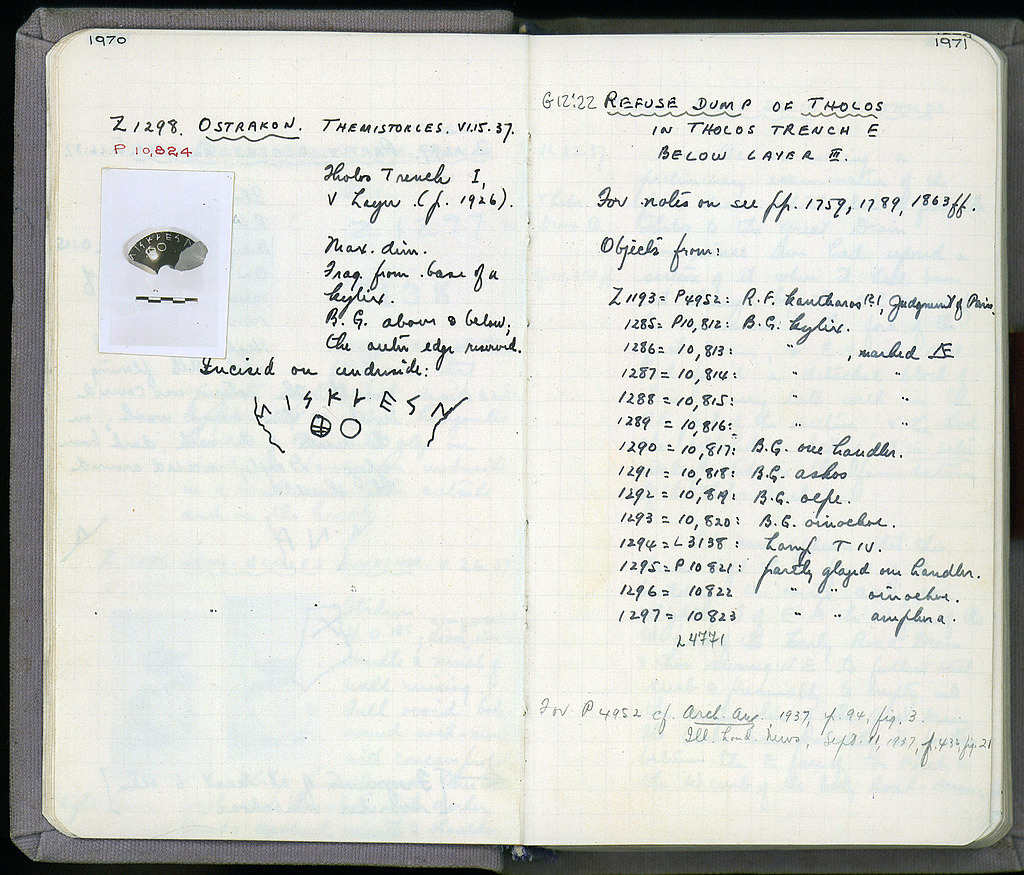 1970
Z 1298. OSTRAKON. THEMISTOKLES. VI.15.37.
P 10,824
Tholos Trench I,
V Layer (p. 1926).
Max. dim.
Frag. from base of a
kylix.
B.G. above & below;
the outer edge reserved.
Incised on underside:
ΛΙSΚLΕS Ν
⊕ Ο
1971
G12:22 REFUSE DUMP OF THOLOS
IN THOLOS TRENCH E
BELOW LAYER III.
For notes on see pp. 1759, 1789, 1863ff.
Objects from:
Z 1193 = P 4952: R.F. kantharos P.1, Judgment of Paris.
1285 = P10,812: B.G. kylix.
1286 = 10,813: " , marked ΔE
1287 = 10,814: "
1288 = 10,815: " "
1289 = 10,816: " "
1290 = 10,817: B.G. one handler.
1291 = 10,818: B.G. askos
1292 = 10,819: B.G. olpe.
1293 = 10,820: B.G. oinochoe.
1294 = L3138: Lamp T IV.
1295 = P 10821: partly glazed one handler.
1296 = 10822 " " oinochoe.
1297 = 10823 " " amphora.
L4771
For P 4952 cf. Arch. Anz. 1937, p. 94, fig. 3.
Ill. Lond. News, Sept. 11, 1937, p. 432 fig. 21